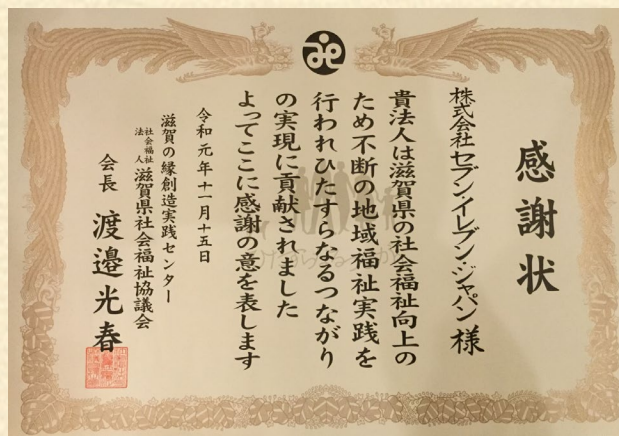 感謝状
株式会社セブン-イレブン・ジャパン様
貴法人は滋賀県の社会福祉向上の
ため不断の地域福祉実践を
行われひたすらなるつながり
の実現に貢献されました
よってここに感謝の意を表します
令和元年十一月十五日
滋賀の縁創造実践センター
社会福祉法人 滋賀県社会福祉協議会
会長 渡邉光春